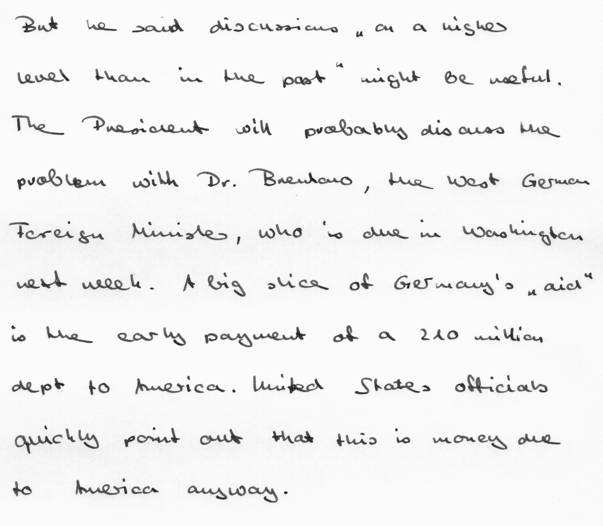 But he said discussions „on a higher
level than in the past" might be useful.
The President will probably discuss the
problem with Dr. Brentano, the West German
Foreign Minister, who is due in Washington
next week. A big slice of Germany's „aid"
is the early payment of a 210 million
dept to America. United States officials
quickly point out that this is money due
to America anyway.